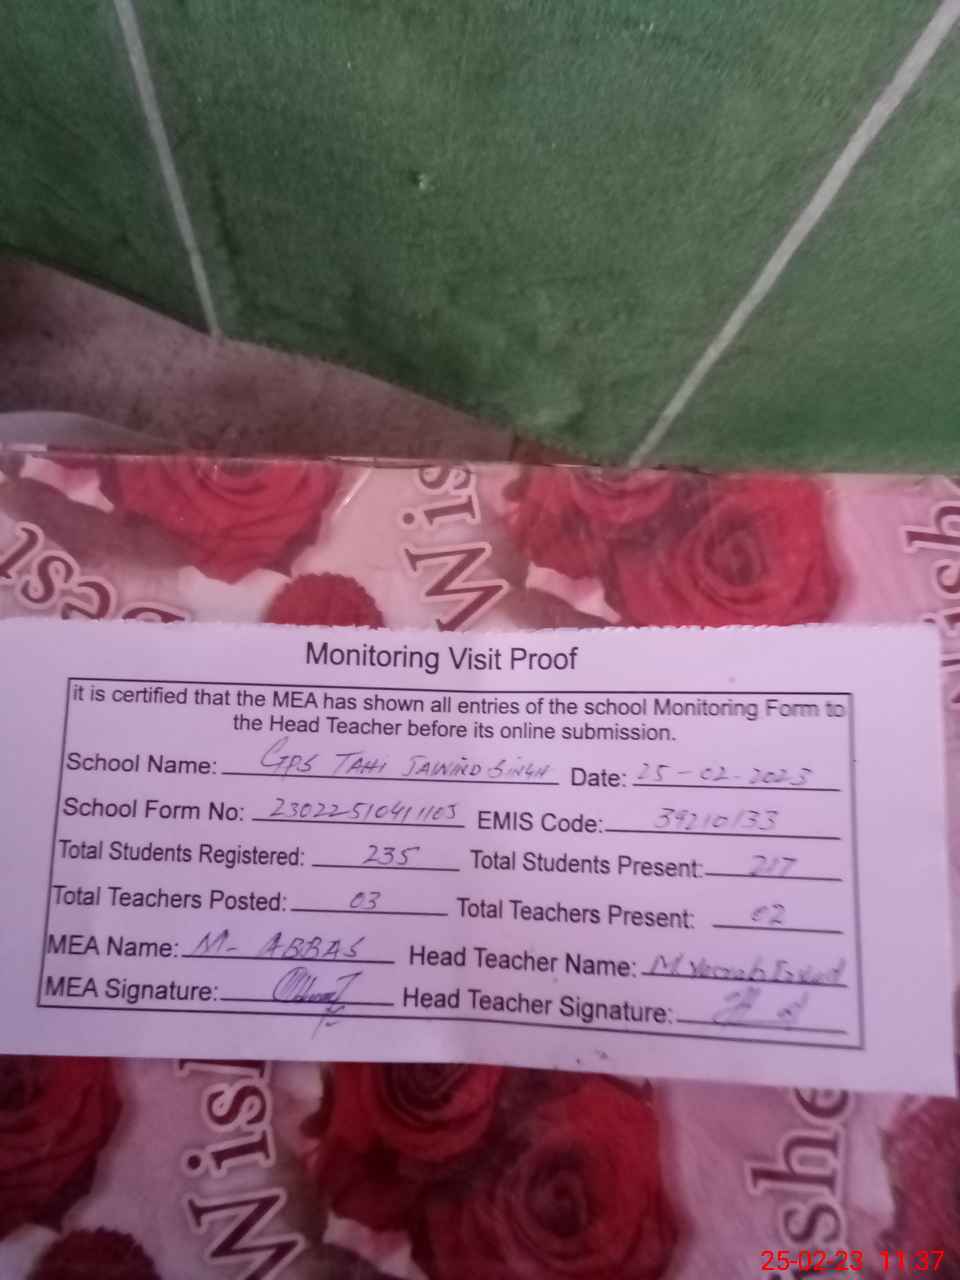 Best
Wish
Wish
Monitoring Visit Proof
it is certified that the MEA has shown all entries of the school Monitoring Form to
the Head Teacher before its online submission.
School Name: GPS TAHI JAWIND SINGH Date: 25-02-2023
School Form No: EMIS Code: 39210133
Total Students Registered: 235 Total Students Present: 217
Total Teachers Posted: 03 Total Teachers Present: 02
MEA Name: M- ABBAS Head Teacher Name: M
MEA Signature: Head Teacher Signature:
Wish
she
25-02-23 11:37